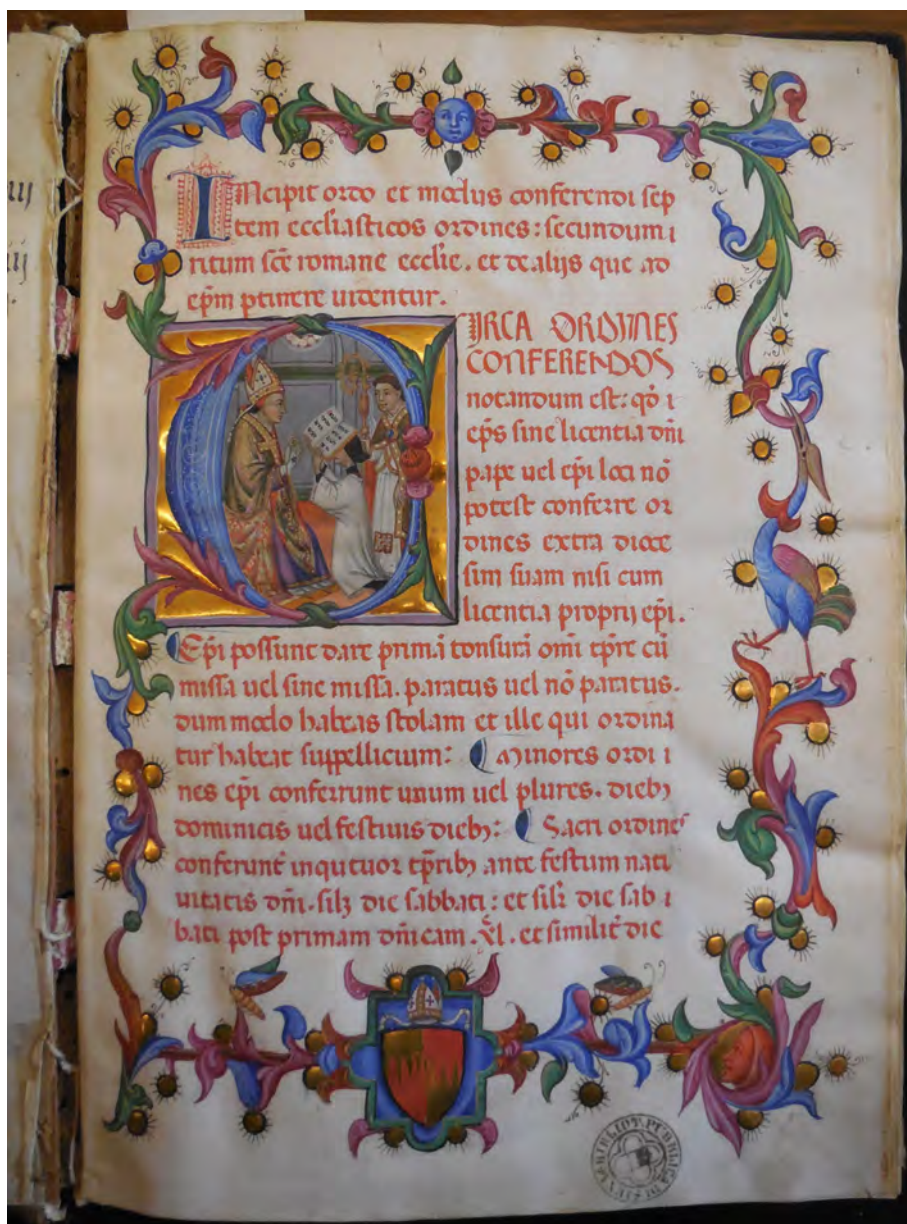 INcipit ordo et modus conferendi sep
tem eccliasticos ordines: secundum i
ritum scē romane ecclīe. et de alijs que ad
ep̄m ptinere uidentur.
CIRCA ORDINES
CONFERENDOS
notandum est: qō i
ep̄s sine licentia dn̄i
pape uel ep̄i loci nō
potest conferre or
dines extra dioce
sim suam nisi cum
licentia proprij ep̄i.
Ep̄i possunt dare primā tonsurā omī tp̄re cū
missa uel sine missa. paratus uel nō paratus.
dum modo habeas stolam et ille qui ordina
tur habeat suppellicium: Minores ordi i
nes ep̄i conferrunt unum uel plures. dieb;
dominicis uel festiuis dieb;: Sacri ordines
conferunt̄ in qutuor tp̄rib; ante festum nati
uitatis dn̄i. silꝫ die sabbati: et sil̄r die sab i
bati post primam dn̄icam. xl. et similit̄ die
BIBLIOT. PUBBLICA DI SIENA